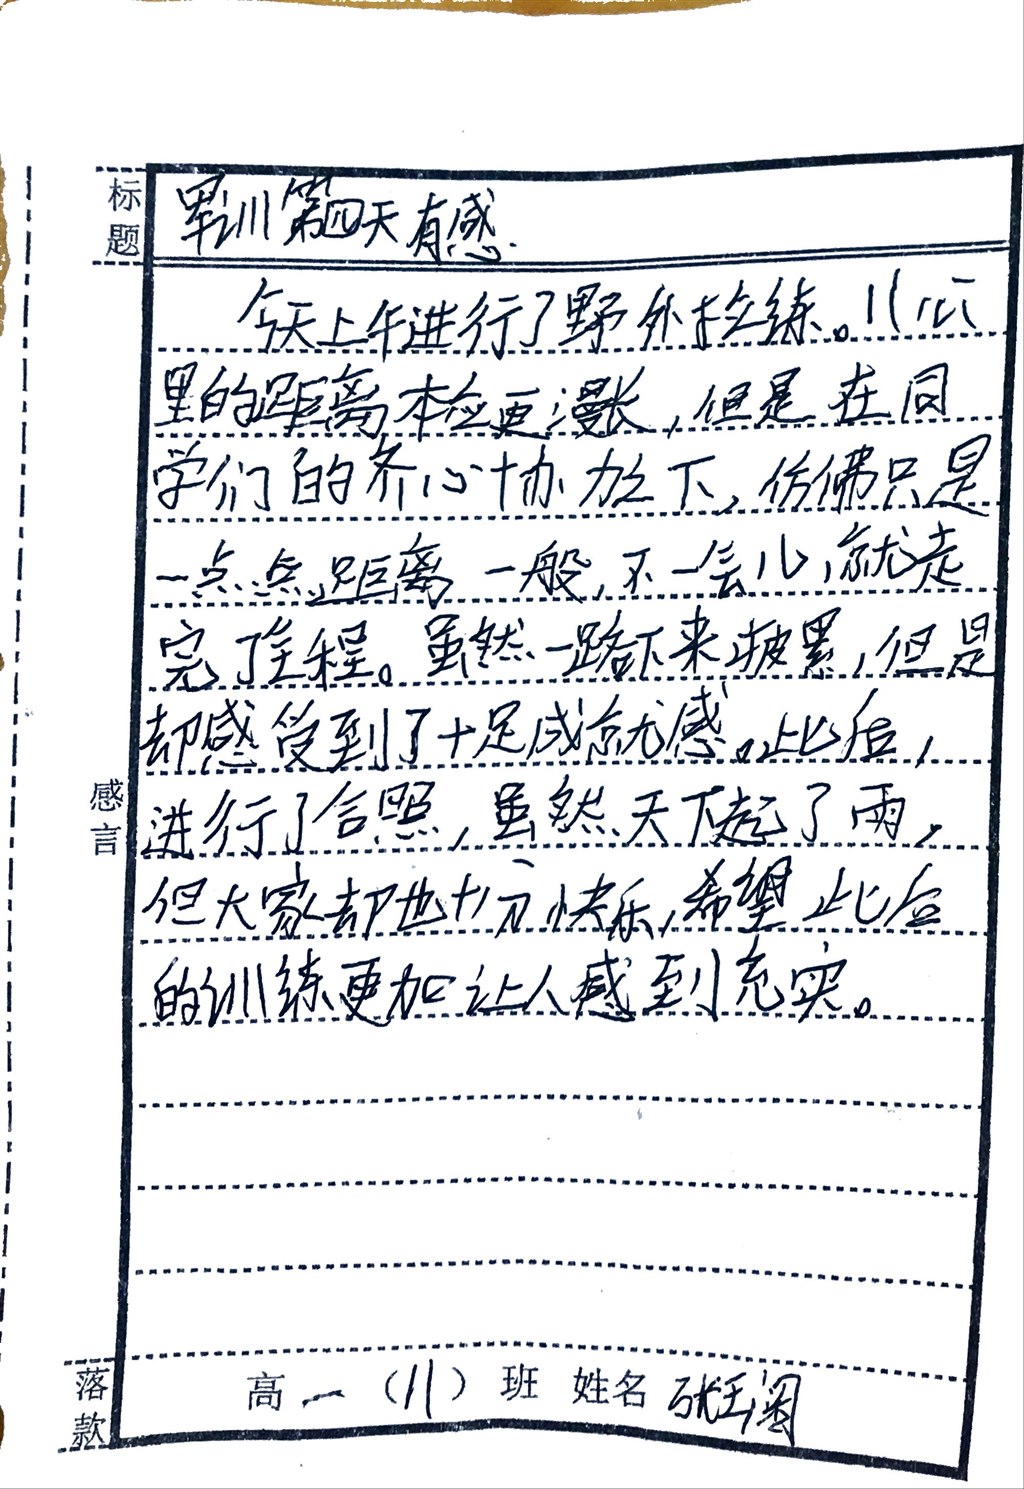 标题
军训第四天有感.
今天上午进行了野外拉练。11公
里的距离本应更漫长,但是在同
学们的齐心协力之下,仿佛只是
一点点距离一般,不一会儿,就走
完了全程。虽然一路下来疲累,但是
却感受到了十足成就感。此后,
进行了合照,虽然天下起了雨,
但大家却也十分快乐,希望此后
的训练更加让人感到充实。
感言
落款
高一(11)班 姓名